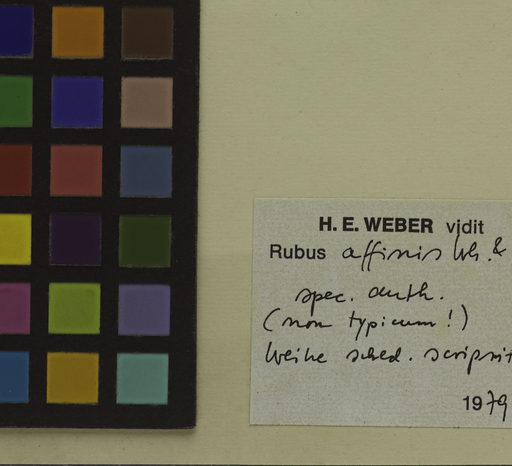 H. E. WEBER vidit
Rubus affinis Wh. &
spec. auth.
(non typicum!)
Weihe sched. scripsit
1979